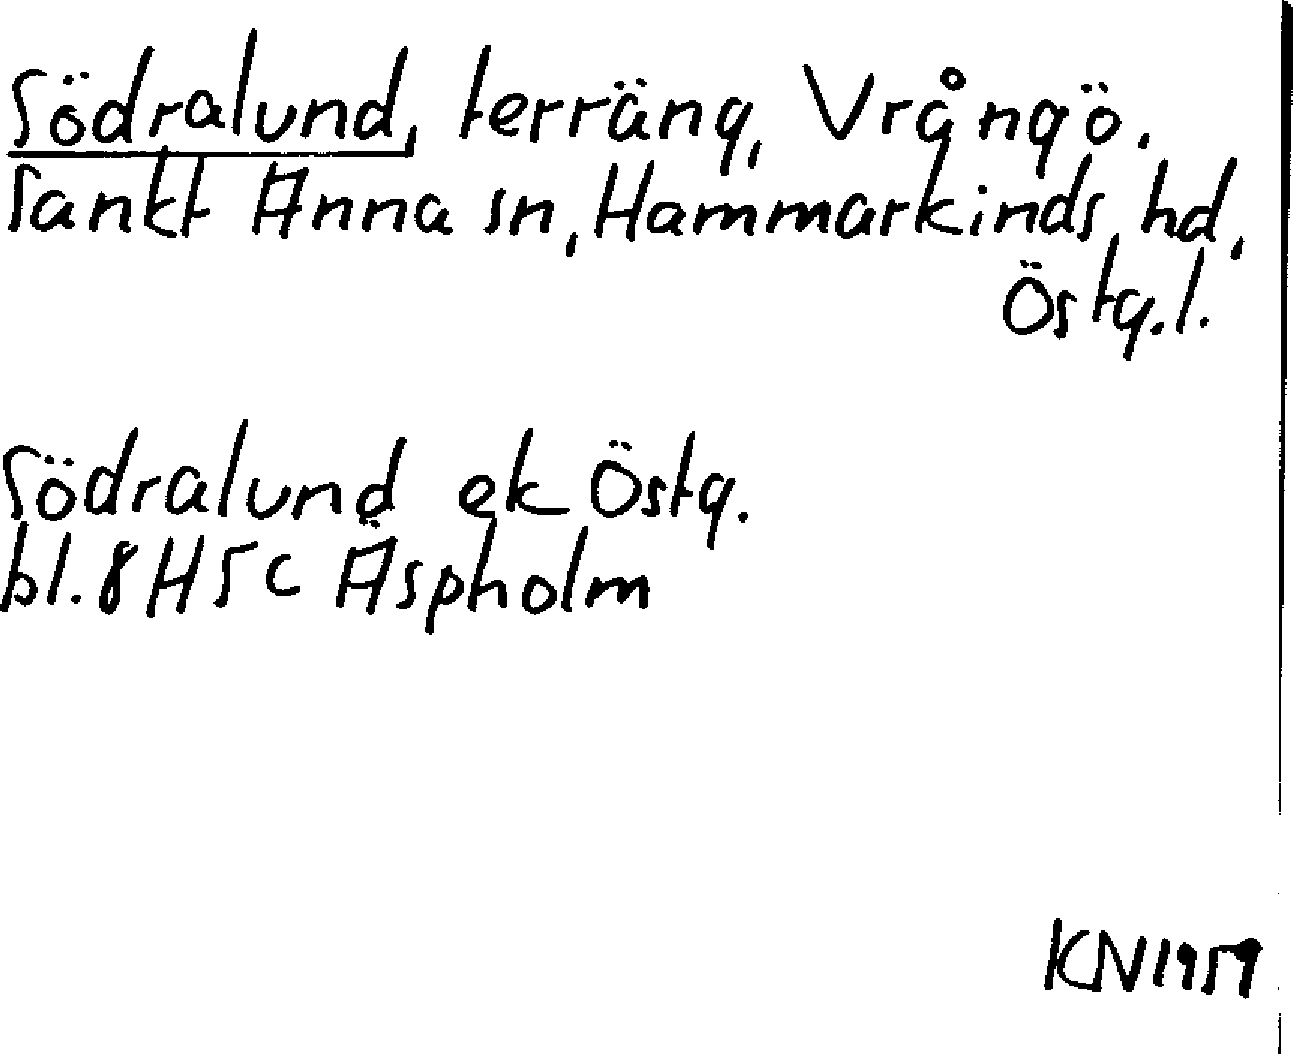 Södralund, terräng, Vrångö.
Sankt Anna sn, Hammarkinds hd,
Östg.l.
Södralund ek Östg.
bl. 8H5c Äspholm
KN1959